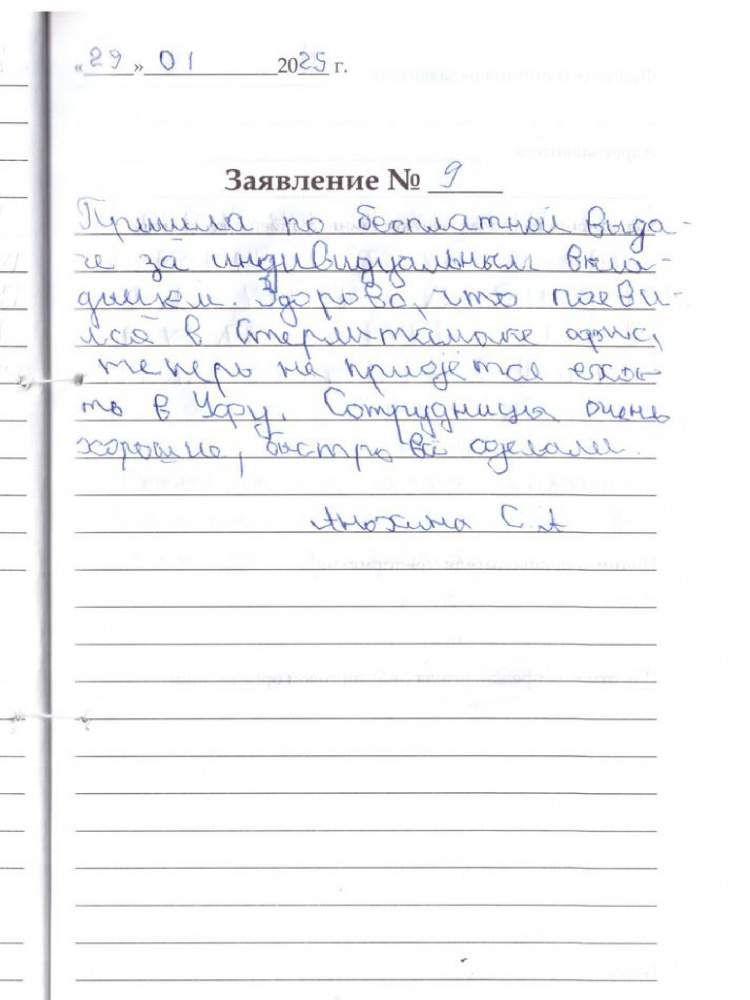 «29» 01 2025 г.
Заявление № 9
Пришла по бесплатной выда-
че за индивидуальным вкла-
дышем. Здорово, что поеви-
лся в Стерлитамаке офис,
теперь не придётся еха-
ть в Уфу. Сотрудницы очень
хорошие, быстро всё сделали.
Анохина С.А